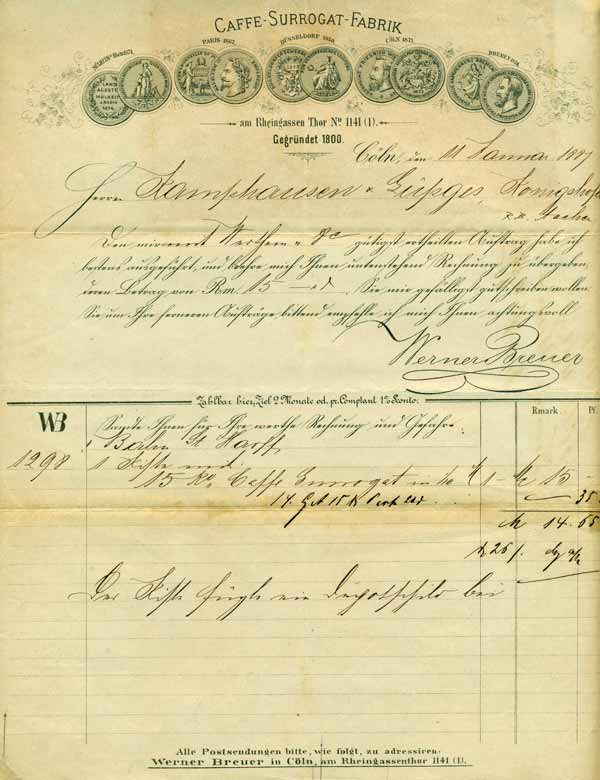 CAFFE-SURROGAT-FABRIK
PARIS 1867. DÜSSELDORF 1880. CÖLN 1875. BREMEN 1874.
am Rheingassen Thor No 1141 (1).
Gegründet 1800.
Cöln, den 11 Januar 1887
Herrn Kamphausen & Güpges, Königshof
Den mir Werthem & Co gütigst ertheilten Auftrag habe ich
bestens ausgeführt, und beehre mich Ihnen untenstehend Rechnung zu übergeben,
deren Betrag von Rm. 15 Sie mir gefälligst gutschreiben wollen.
Sie um Ihre ferneren Aufträge bittend empfehle ich mich Ihnen achtungsvoll
Werner Breuer
Zahlbar hier, Ziel 2 Monate od. pr. Comptant 1% Sconto.
WB Rmark. Pf.
Sandte Ihnen für Ihre werthe Rechnung und Gefahr:
Bahn St
1298 1 Kiste
15 Ko Caffe Surrogat in 1- M 15
35
M 14.65
Der Kiste fügte ein Depotschild bei
Alle Postsendungen bitte, wie folgt, zu adressiren:
Werner Breuer in Cöln, am Rheingassenthor 1141 (1).